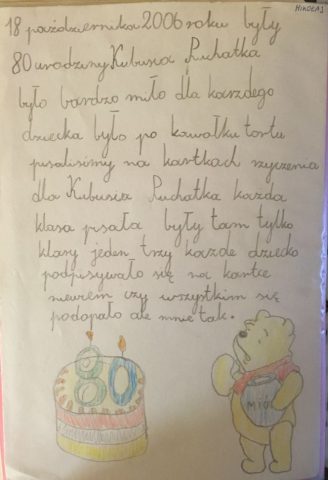 MIKOŁAJ
18 października 2006 roku były
80 urodziny Kubusia Puchatka
było bardzo miło dla karzdego
dziecka było po kawałku tortu
pisalisimy na kartkach rzyczenia
dla Kubusia Puchatka każda
klasa pisała były tam tylko
klasy jeden trzy każde dziecko
podpisywało się na kartce
niewiem czy wszystkim się
podopało ale mnie tak.
80
MIÓD